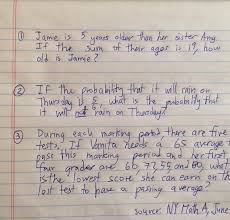 ① Jamie is 5 years older than her sister Amy.
If the sum of their ages is 19, how
old is Jamie?
② If the probability that it will rain on
Thursday is 5/6, what is the probability that
it will not rain on Thursday?
③ During each marking period there are five
tests. If Vanita needs a 65 average to
pass this marking period and her first
four grades are 60, 72, 55 and 80, what
is the lowest score she can earn on the
last test to have a passing average?
source: NY Math A, June